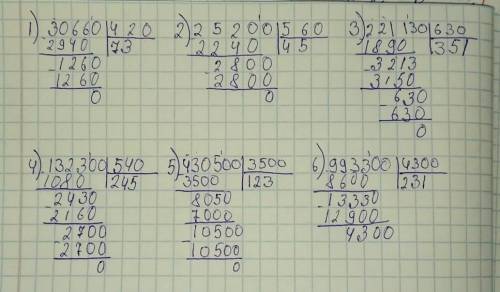 1) 30660 | 420
2940 | 73
-1260
1260
0
2) 25200 | 560
2240 | 45
-2800
2800
0
3) 221130 | 630
1890 | 351
-3213
3150
-630
630
0
4) 132300 | 540
1080 | 245
-2430
2160
-2700
2700
0
5) 430500 | 3500
3500 | 123
8050
7000
-10500
10500
0
6) 993300 | 4300
8600 | 231
-13330
12900
4300